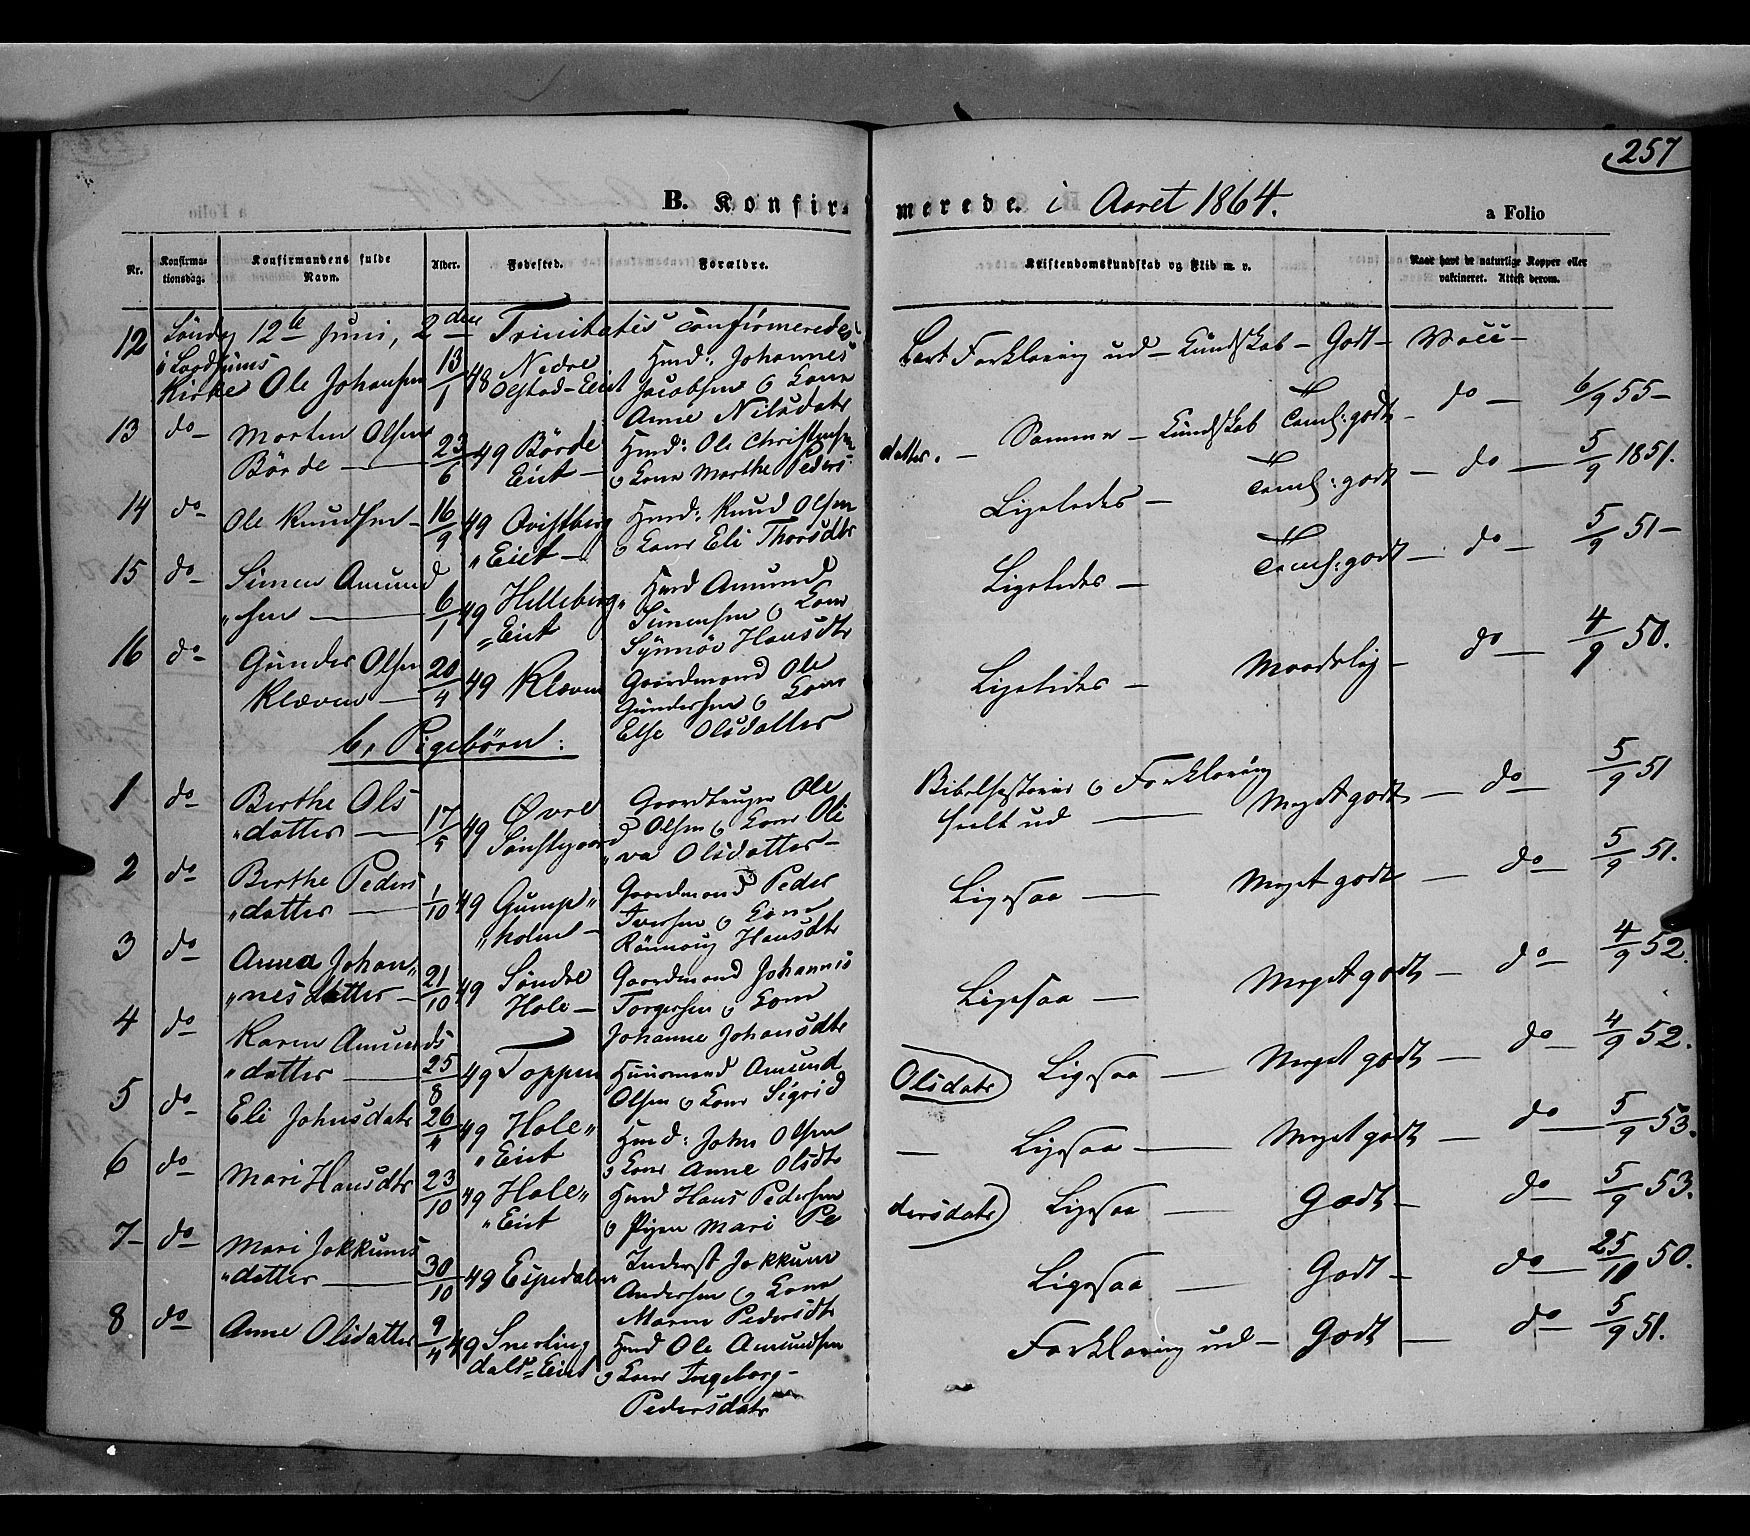 257
B. Konfirmerede. i Aaret 1864.
a Folio
Nr. Konfirmationsdag. Konfirmandens fulde Navn. Alder. Fødested. Forældre. Kristendomskundskab og Flid m. v. Naar havt de naturlige Kopper eller vaksineret. Attest derom.
12 Søndag 12te Juni, 2den Trinitatis confirmeredes
i Kirke Ole Johansen 13/1 48 Nedre Olstad-Eiet Hmd: Johannes Jacobsen o Kone Anne Nilsdatr
Lært Forklaring ud - Kundskab - Godt - Vacc - do - 6/9 55 -
13 do - Morten Olsen Börde - 23/6 49 Börde Eiet - Hmd: Ole Christensen o Kone Marthe Peders
datter. - Samme - Kundskab Teml: godt - do - 5/9 1851.
14 do - Ole Knudsen - 16/9 49 Qvistberg „Eiet - Hmd: Knud Olsen o Kone Eli Thorsdtr
Ligeledes - Teml: godt - do - 5/9 51 -
15 do - Simen Amund „sen - 6/1 49 Hilleberg „Eiet Hmd Amund Simensen o Kone Synnöv Hansdtr
Ligeledes - Teml: godt - do - 4/9 50.
16 do - Gunder Olsen Klæven - 20/4 49 Klæven Gaardmand Ole Gundersen o Kone Else Olsdatter
Ligeledes - Maadelig -
b, Pigebörn:
1 do - Berthe Ols „datter - 17/5 49 Øvre Sönstegaard Gaardbruger Ole Olsen o Kone Oli „va Olsdatter -
Bibelhistorie o Forklaring heelt ud - Meget godt - do - 5/9 51
2 do - Berthe Peders „datter - 1/10 49 Gump „holm - Gaardmand Peder Iversen o Kone Rönnoug Hansdtr
Ligesaa - Meget godt - do - 5/9 51.
3 do - Anna Johan „nesdatter - 21/10 49 Söndre Hole - Gaardmand Johannis Torgersen o Kone Johanne Johansdtr
Ligesaa - Meget godt - do - 4/9 52.
4 do - Karen Amunds „datter - 25/8 49 Toppen Huusmand Amund Olsen o Kone Sigrid
Olsdatr Ligesaa - Meget godt - do - 4/9 52.
5 do - Eli Johnsdatr 26/4 49 Hole „Eiet Hmd: John Olsen o Kone Anne Olsdtr
- Ligesaa - Meget godt - do - 5/9 53.
6 do - Mari Hansdtr 23/10 49 Hole „Eiet Hmd Hans Pedersen o Pigen Mari Pe
dersdatr Ligesaa - Godt - do - 5/9 53.
7 - do - Mari Jokkums „datter - 30/10 49 Espedalen Inderst Jokkum Andersen o Kone Maren Pedersdtr
Ligesaa - Godt - do - 25/10 50.
8 do - Anne Olsdatter 9/4 49 Snerling dals=Eiet Hmd Ole Amundsen o Kone Ingeborg - Pedersdatr
Forklaring ud - Godt - do - 5/9 51.